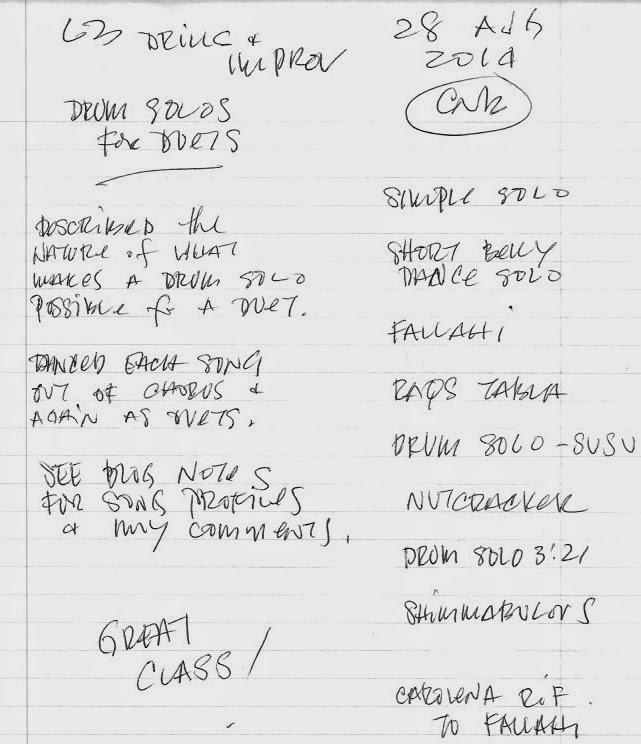 L3 DRILL &
IMPROV
DRUM SOLOS
FOR DUETS
DESCRIBED the
NATURE of WHAT
MAKES A DRUM SOLO
POSSIBLE for A DUET.
DANCED EACH SONG
OUT OF CHORUS &
AGAIN AS DUETS.
SEE BLOG NOTES
FOR SONG PROFILES
& MY COMMENTS.
GREAT
CLASS!
28 AUG
2014
SIMPLE SOLO
SHORT BELLY
DANCE SOLO
FALLAHI
RAQS TABLA
DRUM SOLO - SUSU
NUTCRACKER
DRUM SOLO 3:21
SHIMMABULOUS
CAROLENA RIF
TO FALLAHI